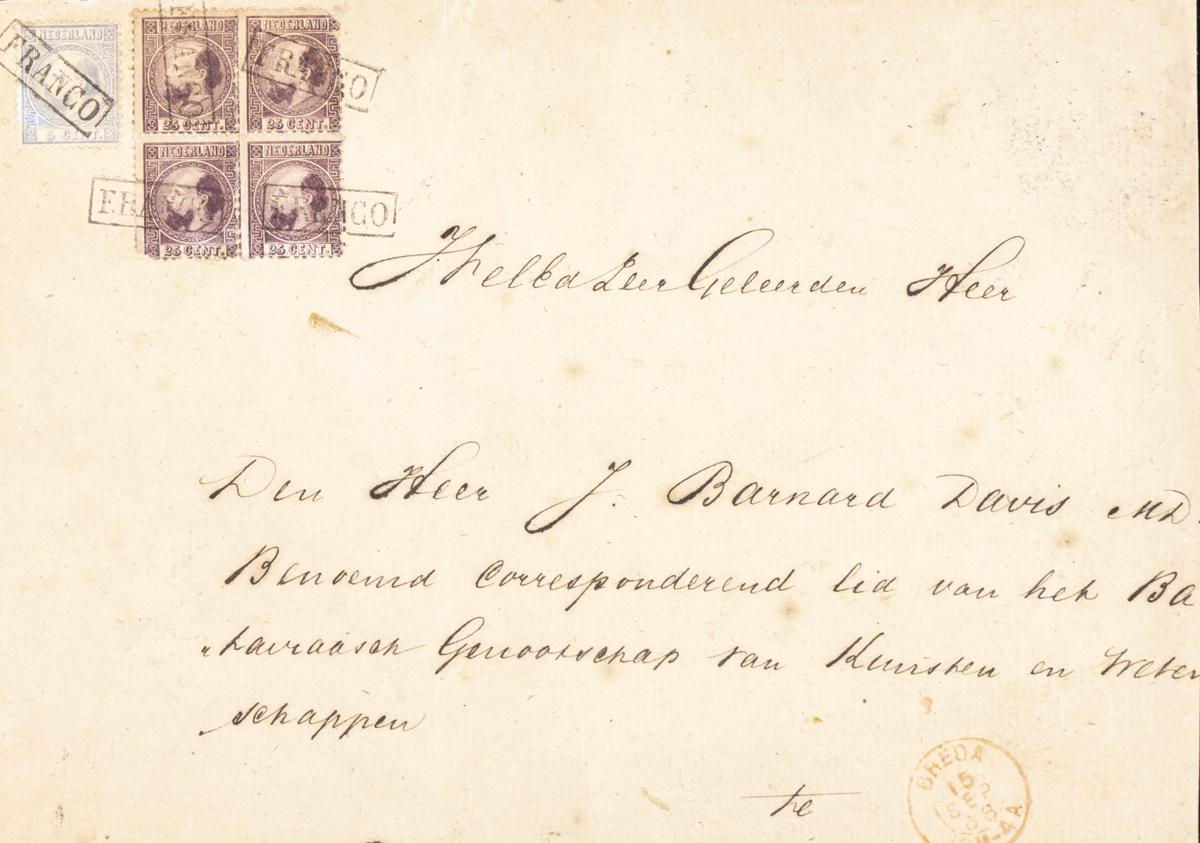 NEDERLAND
5 CENT.
FRANCO
NEDERLAND NEDERLAND
25 CENT. 25 CENT.
FRANCO FRANCO
NEDERLAND NEDERLAND
25 CENT. 25 CENT.
FRANCO FRANCO
Geleerden Heer
Den Heer J. Barnard Davis MD.
Benoemd Corresponderend lid van het Ba
„taviaasch Genootschap van Kunsten en Weten
schappen
te
BREDA